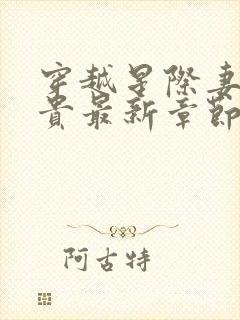 穿越星際妻
貴最新章節
阿古特